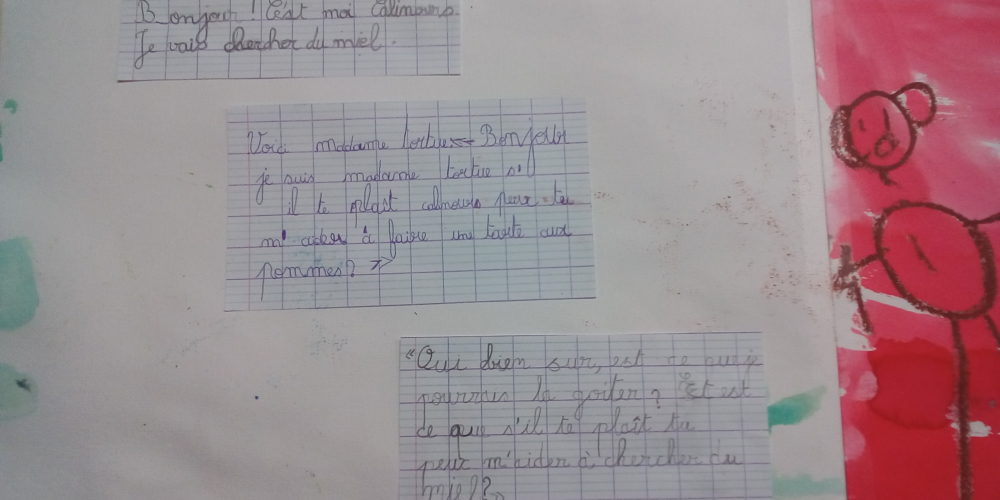 Bonjour ! C'est moi Calinours.
Je vais chercher du miel.
Voici madame tortue « Bonjour
je suis madame tortue s'il
il te plait calinours peux-tu
m'aider à faire une tarte aux
pommes ? »
"Oui bien sur, est ce que je
pourrais la goiter ? Et est
ce que s'il te plaît tu
peux m'aider à chercher du
miel ?"